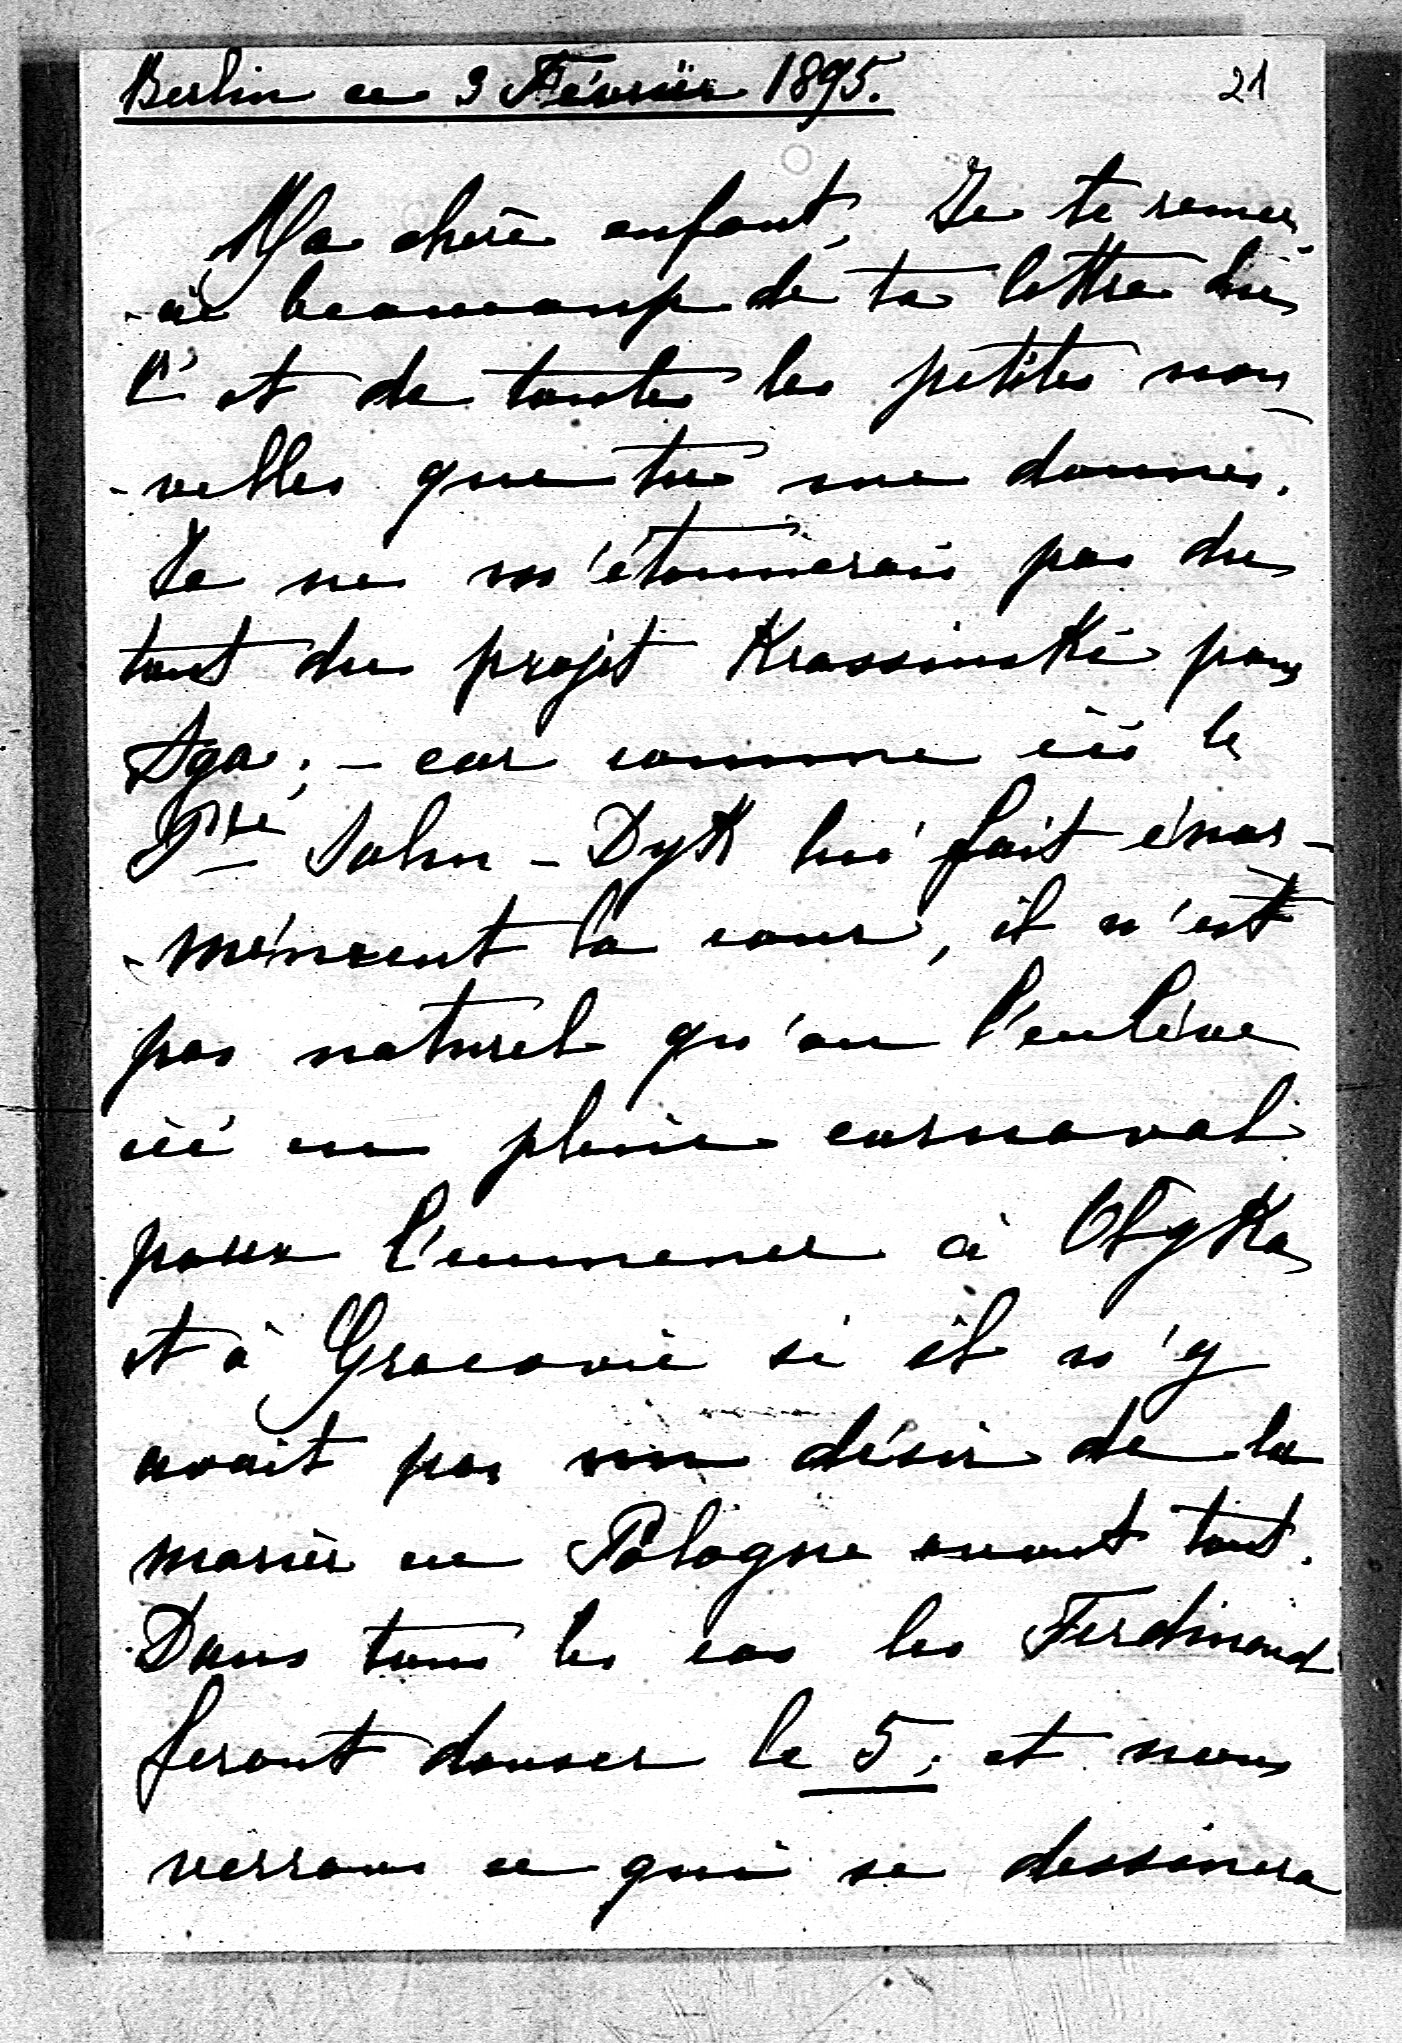 Berlin ce 3 Février 1895.
21
Ma chère enfant, Je te remer
-cie beaucoup de ta lettre du
1er et de toutes les petites nou
-velles que tu me donnes.
Je ne m'étonnerais pas du
tout du projet Krassinski pour
Aga; - car comme ici le
Pce Salm-Dyk lui fait énor-
-mément la cour, il n'est
pas naturel qu'on l'enlève
ici en plein carnaval
pour l'emmener à Ołyka
et à Cracovie si il n'y
avait pas un désir de la
marier en Pologne avant tout.
Dans tous les cas les Ferdinand
feront danser le 5; et nous
verrons ce qui se dessinera